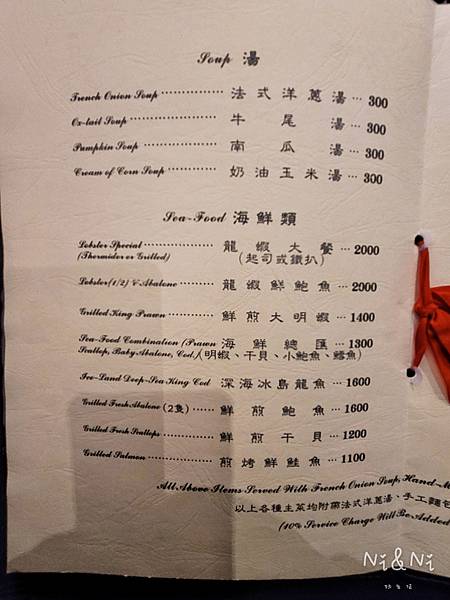 Soup 湯
French Onion Soup ············ 法式洋蔥湯 ··· 300
Ox-tail Soup ··············· 牛尾湯 ··· 300
Pumpkin Soup ············ 南瓜湯 ··· 300
Cream of Corn Soup ········ 奶油玉米湯 ··· 300
Sea-Food 海鮮類
Lobster Special ·············· 龍蝦大餐 ··· 2000
(Thermider or Grilled) (起司或鐵扒)
Lobster(1/2) & Abalone ······ 龍蝦鮮鮑魚 ··· 2000
Grilled King Prawn ············ 鮮煎大明蝦 ··· 1400
Sea-Food Combination (Prawn 海鮮總匯 ··· 1300
Scallop, Baby Abalone, Cod) (明蝦、干貝、小鮑魚、鱈魚)
Ice-Land Deep-Sea King Cod 深海冰島龍魚 ··· 1600
Grilled Fresh Abalone (2隻) ······ 鮮煎鮑魚 ··· 1600
Grilled Fresh Scallops ············ 鮮煎干貝 ··· 1200
Grilled Salmon ··············· 煎烤鮮鮭魚 ··· 1100
All Above Items Served With French Onion Soup, Hand-M
以上各種主菜均附帶法式洋蔥湯、手工麵包
(10% Service Charge Will Be Added
Ni & Ni